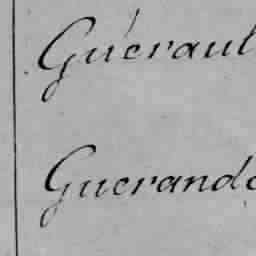 Guéraul
Guerande